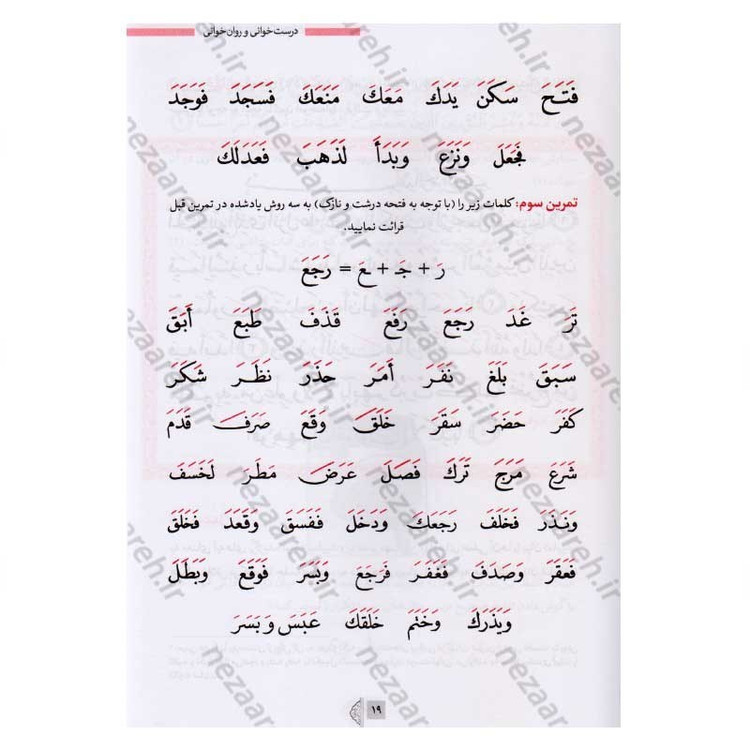 درست‌خوانی و روان‌خوانی
فَتَحَ سَكَنَ يَدَكَ مَعَكَ مَنَعَكَ فَسَجَدَ فَوَجَدَ
فَجَعَلَ وَنَزَعَ وَبَدَأَ لَذَهَبَ فَعَدَلَكَ
تمرین سوم: کلمات زیر را (با توجه به فتحه درشت و نازک) به سه روش یادشده در تمرین قبل
قرائت نمایید.
رَ + جَـ + ـعَ = رَجَعَ
تَرَ غَدَ رَجَعَ رَفَعَ قَذَفَ طَبَعَ أَبَقَ
سَبَقَ بَلَغَ نَفَرَ أَمَرَ حَذَرَ نَظَرَ شَكَرَ
كَفَرَ حَضَرَ سَقَرَ خَلَقَ وَقَعَ صَرَفَ قَدَمَ
شَرَعَ مَرَجَ تَرَكَ فَصَلَ عَرَضَ مَطَرَ لَخَسَفَ
وَنَذَرَ فَخَلَفَ رَجَعَكَ وَدَخَلَ فَفَسَقَ وَقَعَدَ فَخَلَقَ
فَعَقَرَ وَصَدَفَ فَغَفَرَ فَرَجَعَ وَبَسَرَ فَوَقَعَ وَبَطَلَ
وَيَذَرَكَ وَخَتَمَ خَلَقَكَ عَبَسَ وَ بَسَرَ
۱۹
nezaareh.ir